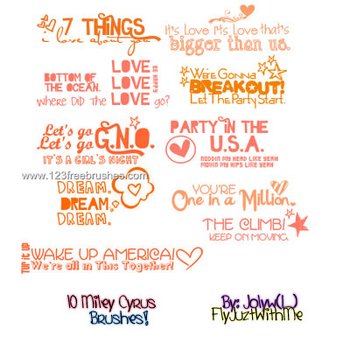 7 THINGS
i love about you
it's Love it's Love that's
bigger than us.
BOTTOM OF
THE OCEAN.
where DiD the
LOVE
LOVE
LOVE
BE HAPPY
go?
WE'RE GONNA
BREAKOUT!
LET THE PARTY START.
Let's go
Let's go
G.N.O.
IT'S A GIRL'S NIGHT
PARTY IN THE
U.S.A.
NODDIN MY HEAD LIKE YEAH
MOVIN MY HIPS LIKE YEAH
www.123freebrushes.com
DREAM.
DREAM.
DREAM.
YOU'RE
One in a Million.
THE CLIMB!
KEEP ON MOVING.
TIP IT UP
WAKE UP AMERICA!
We're all in This Together!
10 Miley Cyrus
Brushes!
By: Jolyw(L)
FlyJuztWithMe